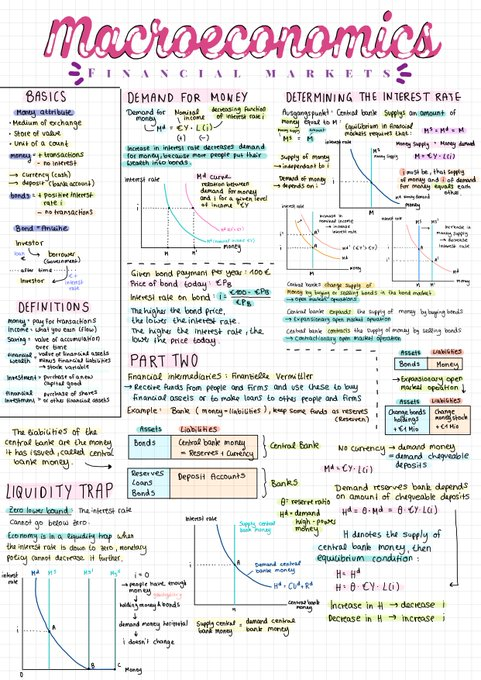 Macroeconomics
FINANCIAL MARKETS
BASICS
Money attribute
• Medium of exchange
• Store of value
• Unit of a count
money = + transactions
- no interest
→ currency (cash)
→ deposit (bank account)
bonds = + positive interest
rate i
- no transactions
Bond = Annuitie
Investor
loan €
borrower
(Government)
after time
Investor
€ + interest
DEFINITIONS
Money = pay for transactions
Income = what you earn (flow)
Saving = value of accumulation
over time
Financial wealth = value of financial assets
minus financial liabilities
→ stock variable
Investment = purchase of a new
capital good
Financial Investment = purchase of shares
or other financial assets
The liabilities of the
central bank are the money
it has issued, called central
bank money.
LIQUIDITY TRAP
Zero lower bound: The interest rate
cannot go below zero.
Economy is in a liquidity trap when
the interest rate is down to zero, monetary
policy cannot decrease it further.
interest rate
i
A
B
C
0
Money
i = 0
→ people have enough
money
holding money & bonds
demand money horizontal
i doesn't change
DEMAND FOR MONEY
Demand for money
Nominal income
decreasing function
of interest rate i
Mᵈ = €Y · L(i)
(+) (-)
Increase in interest rate decreases demand
for money, because more people put their
wealth into bonds.
interest rate
Mᵈ curve
relation between
demand for money
and i for a given level
of income €Y
i
M
money
Given bond payment per year: 100 €
Price of bond today: €P_B
Interest rate on bond: i = (€100 - €P_B) / €P_B
The higher the bond price,
the lower the interest rate.
The higher the interest rate, the
lower the price today.
PART TWO
Financial intermediaries: Finantielle Vermittler
→ Receive funds from people and firms and use these to buy
financial assets or to make loans to other people and firms
Example: Bank (money = liabilities), keep some funds as reserves
(Reserven)
Assets Liabilities
Bonds
Central bank money
= Reserves + Currency
Central Bank
Reserves
Loans
Bonds
Deposit Accounts
Banks
interest rate
Supply central
bank money
θ = reserve ratio
Hᵈ = demand
high-power
money
A
i
Demand central
bank money
H
central bank
money
Supply central bank money = demand central bank money
DETERMINING THE INTEREST RATE
Ausgangspunkt: Central bank supplys an amount of
money equal to M
Equilibrium in financial
markets requires that:
Mˢ = Mᵈ = M
Money Supply = Money demand
M = €Y · L(i)
Mˢ = M
Supply of money
→ independent to i
Demand of money
→ depends on i
interest rate
Mˢ
money supply
A
i
Mᵈ
M
money
i must be, that supply
of money and i of demand
for money equals each
other.
Increase in
nominal income
→ increase
interest rate
Increase in
money supply
→ decrease
interest rate
Central banks change supply of
money by buying or selling bonds in the bond market
→ open market operations
Central banks expands the supply of money by buying bonds
→ Expansionary open market operation
Central banks contracts the supply of money by selling bonds
→ Contractionary open market operation
Assets Liabilities
Bonds Money
→ Expansionary open
market operation
Assets Liabilities
Change bonds
holdings
+ €1 Mio
Change
money stock
+ €1 Mio
No currency → demand money
= demand chequeable
deposits
Mᵈ = €Y · L(i)
Demand reserves bank depends
on amount of chequeable deposits
Hᵈ = θ · Mᵈ = θ · €Y · L(i)
H denotes the supply of
central bank money, then
equilibrium condition:
H = Hᵈ
H = θ · €Y · L(i)
Increase in H → decrease i
Decrease in H → increase i